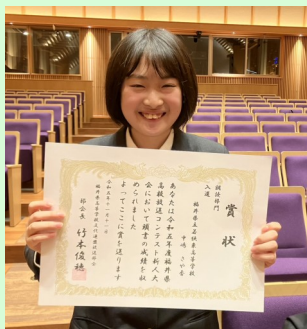 賞状
朗読部門
入選
福井県立若狭東高等学校
あなたは令和五年度福井県
高校放送コンテスト新人大
会において頭書の成績を収
められました
よってここに賞を送ります
令和五年十一月十一日
福井県高等学校文化連盟放送部会
部会長 竹本俊穂